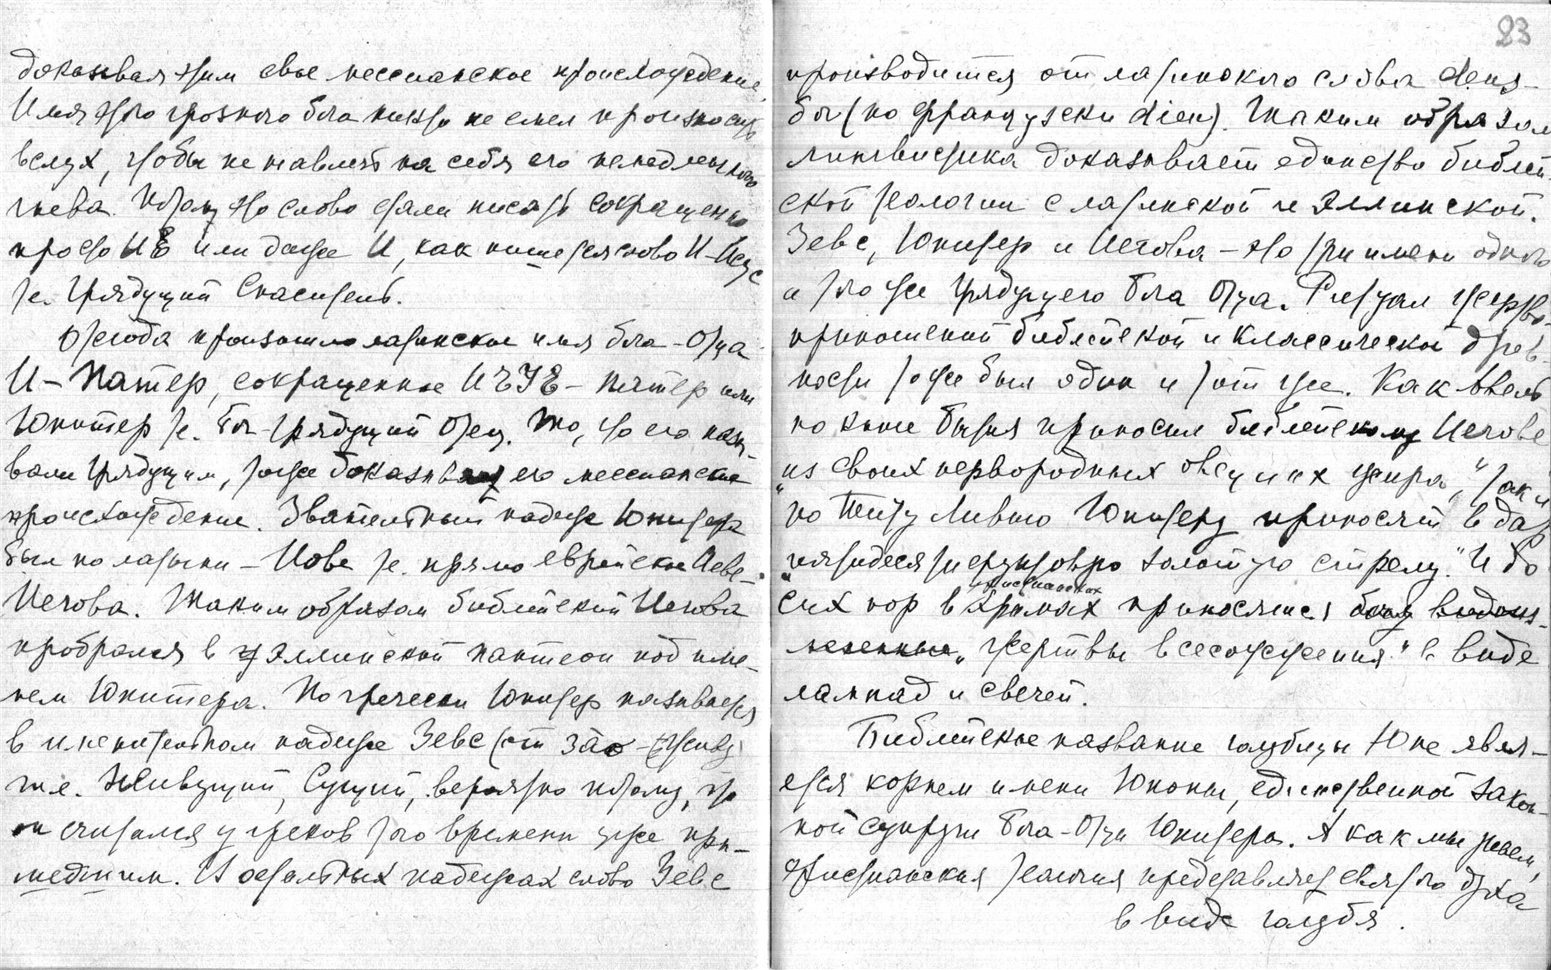 доказывая этим свое мессианское происхождение.
Имя этого грозного бога никто не смел произносить
вслух, чтобы не навлечь на себя его немедленного
гнева. Потому это слово стали писать сокращенно
просто ИЕ или даже И, как пишется слово И-Исус
т.е. Грядущий Спаситель.
Отсюда произошло латинское имя бога-Отца
И-Патер, сокращенное ИЪУЪ-патер или
Юпитер т.е. Бог-Грядущий Отец. То, что его назы-
вали Грядущим, тоже доказывает его мессианское
происхождение. Звательный падеж Юпитера
был по латыни - Иове т.е. прямо еврейское Иеве-
Иегова. Таким образом библейский Иегова
пробрался в эллинский пантеон под име-
нем Юпитера. По гречески Юпитер называется
в именительном падеже Зевс (от зао - живу)
т.е. Живущий, Сущий, вероятно потому, что
он считался у греков того времени уже при-
шедшим. В остальных падежах слово Зевс
23
производится от латинского слова deus-
бог (по французски dieu). Таким образом
лингвистика доказывает единство библей-
ской теологии с латинской и эллинской.
Зевс, Юпитер и Иегова - это три имени одного
и того же Грядущего Бога Отца. Ритуал жертво-
приношений библейской и классической древ-
ности тоже был один и тот же. Как Авель
по книге Бытия приносил библейскому Иегове
"из своих первородных овец и их жира", так и
по Титу Ливию Юпитеру приносят в дар
"пятидесятифунтовую золотую стрелу." И до
христианских
сих пор в храмах приносятся богу видоиз-
мененные "жертвы всесожжения" в виде
лампад и свечей.
Библейское название голубицы Юне явля-
ется корнем имени Юноны, единственной закон-
ной супруги Бога-Отца Юпитера. А как мы знаем,
христианская теология представляет святого духа
в виде голубя.